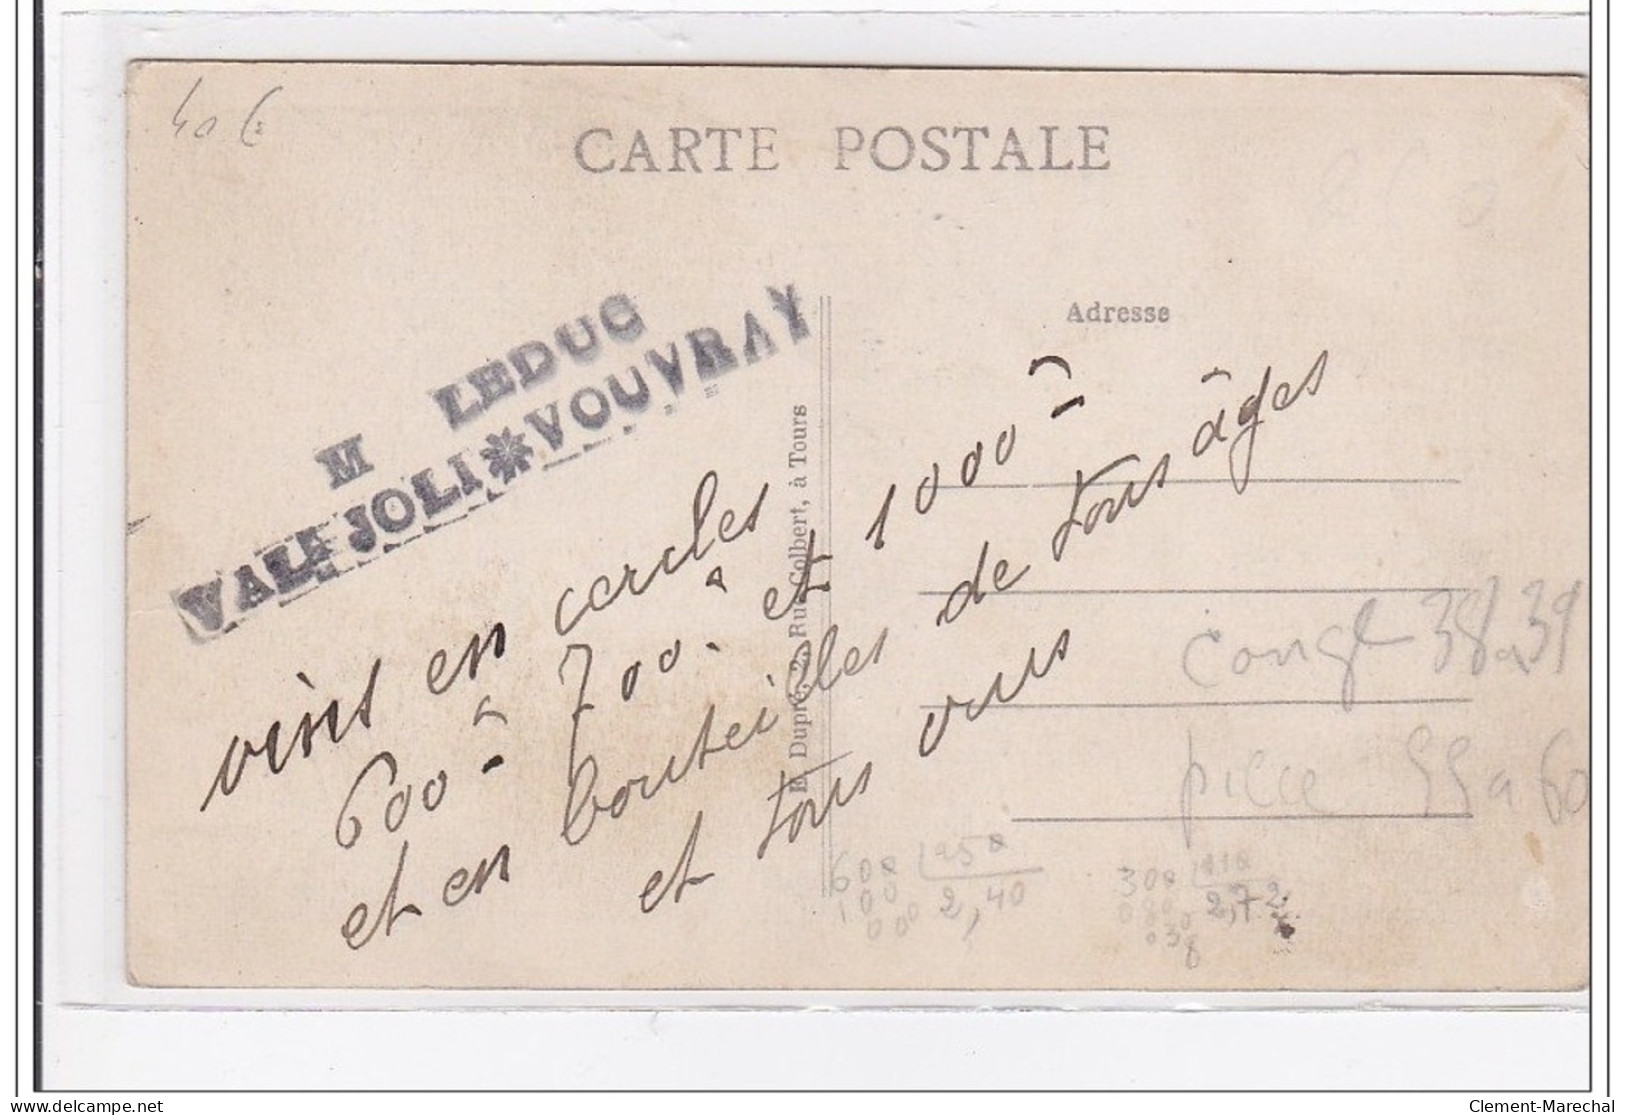 40 €
CARTE POSTALE
M LEDUC
VALL JOLI * VOUVRAY
Adresse
E. Dupré, 2, Rue Colbert, à Tours
vins en cercles
600 à 700. et 1000
et en bouteilles de tous âges
et tous crus
congé 38 a 39
pièce 55 a 60
600 250
100 2,40
000
300 110
080 2,72
030
8
Clement-Marechal